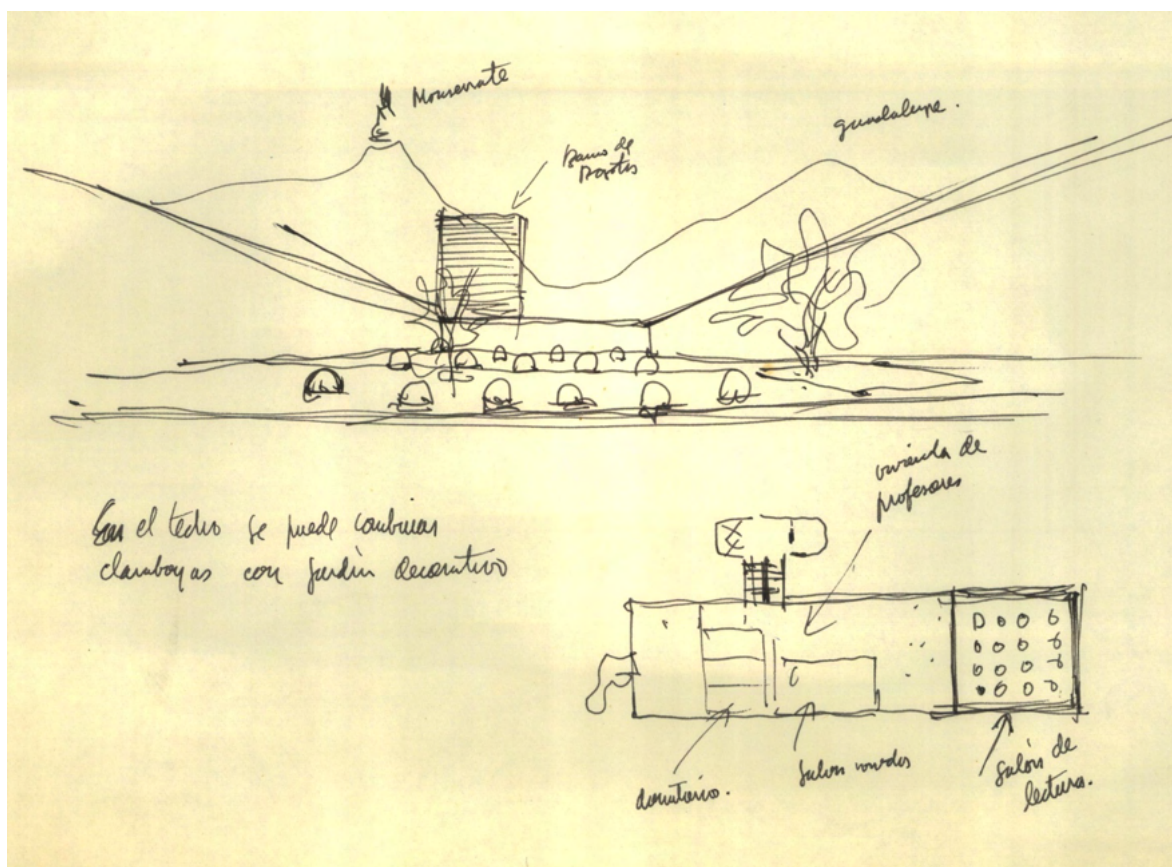 Monserrate
guadalupe.
Banco de
Bogotá
En el techo se puede combinar
claraboyas con jardín decorativo
vivienda de
profesores
dormitorio.
Salon
salón de
lectura.